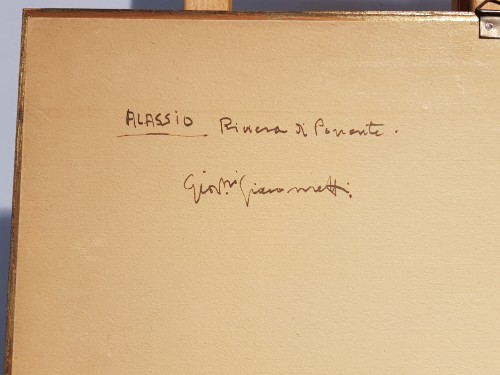 ALASSIO Riviera di Ponente.
Giov.ni Giacometti.